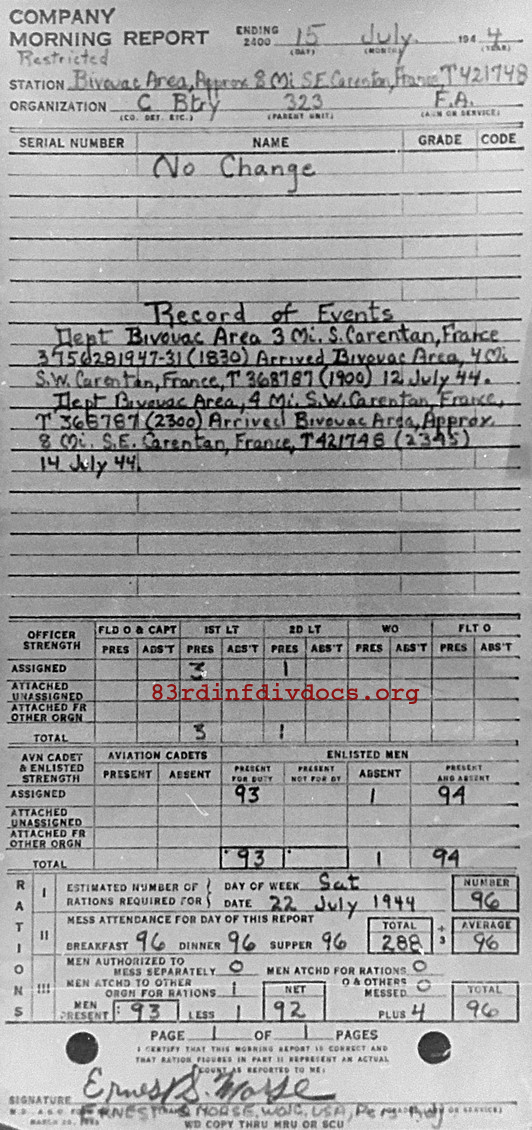 COMPANY
MORNING REPORT ENDING 2400 15 July 194 4
(DAY) (MONTH) (YEAR)
Restricted
STATION Bivouac Area, Approx 8 Mi S.E. Carentan, France T421748
ORGANIZATION C Btry 323 F.A.
(CO. DET. ETC.) (PARENT UNIT) (ARM OR SERVICE)
SERIAL NUMBER NAME GRADE CODE
No Change
Record of Events
Dept Bivouac Area 3 Mi. S. Carentan, France
(1830) Arrived Bivouac Area, 4 Mi
S.W. Carentan, France, T 368787 (1900) 12 July 44.
Dept Bivouac Area, 4 Mi. S.W. Carentan, France,
T 368787 (2300) Arrived Bivouac Area, Approx
8 Mi. S.E. Carentan, France, T421748 (2345)
14 July 44.
OFFICER STRENGTH FLD O & CAPT 1ST LT 2D LT WO FLT O
PRES ABS'T PRES ABS'T PRES ABS'T PRES ABS'T PRES ABS'T
ASSIGNED 3 1
ATTACHED UNASSIGNED
83rdinfdivdocs.org
ATTACHED FR OTHER ORGN
TOTAL 3 1
AVN CADET & ENLISTED STRENGTH AVIATION CADETS ENLISTED MEN
PRESENT ABSENT PRESENT FOR DUTY PRESENT NOT FOR DY ABSENT PRESENT AND ABSENT
ASSIGNED 93 1 94
ATTACHED UNASSIGNED
ATTACHED FR OTHER ORGN
TOTAL 93 1 94
RATIONS
I ESTIMATED NUMBER OF RATIONS REQUIRED FOR DAY OF WEEK Sat NUMBER
DATE 22 July 1944 96
II MESS ATTENDANCE FOR DAY OF THIS REPORT TOTAL ÷ 3 AVERAGE
BREAKFAST 96 DINNER 96 SUPPER 96 288 96
III MEN AUTHORIZED TO MESS SEPARATELY 0 MEN ATCHD FOR RATIONS 0
MEN ATCHD TO OTHER ORGN FOR RATIONS 1 NET O & OTHERS MESSED 0 TOTAL
MEN PRESENT 93 LESS 1 92 PLUS 4 96
PAGE 1 OF 1 PAGES
I CERTIFY THAT THIS MORNING REPORT IS CORRECT AND
THAT RATION FIGURES IN PART II REPRESENT AN ACTUAL
COUNT AS REPORTED TO ME:
SIGNATURE Ernest S. Morse
ERNEST S MORSE, WOJG, USA, Pers Adj
WD COPY THRU MRU OR SCU